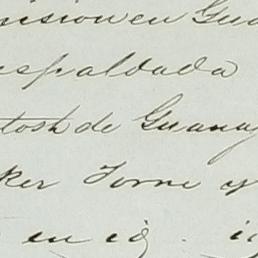 ision en Gua
espaldada
tosh de Guana
ker Torre y
en id. i